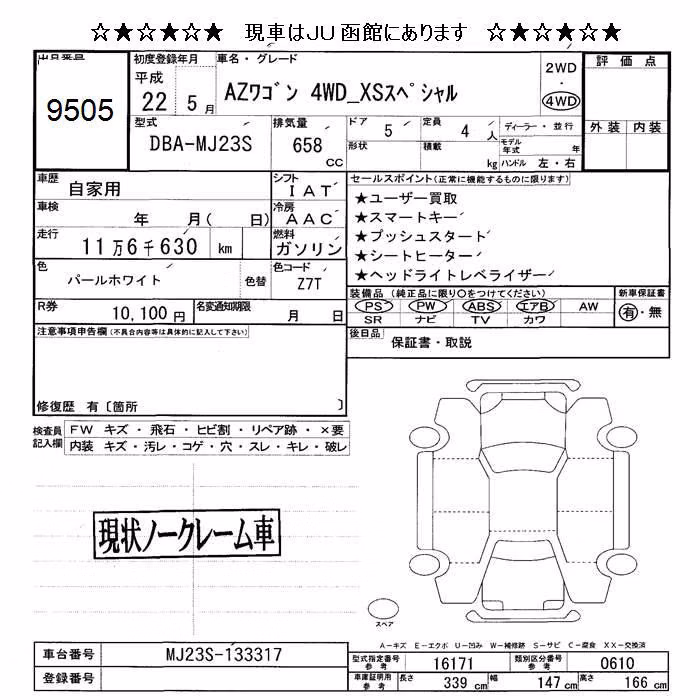 ☆★☆★☆★ 現車はJU函館にあります ☆★☆★☆★
出品番号
9505
初度登録年月
平成
22 5月
車名・グレード
AZワゴン 4WD_XSスペシャル
2WD
・
4WD
評価点
外装 内装
型式
DBA-MJ23S
排気量
658
CC
ドア 5
形状
定員 4 人
積載 kg
ディーラー・並行
モデル年式 年
ハンドル 左・右
車歴 自家用
シフト IAT
車検 年 月( 日)
冷房 AAC
走行 11万6千630 km
燃料 ガソリン
色 パールホワイト 色替
色コード Z7T
R券 10,100円
名変通知期限 月 日
セールスポイント(正常に機能するものに限ります)
★ユーザー買取
★スマートキー
★プッシュスタート
★シートヒーター
★ヘッドライトレベライザー
装備品(純正品に限り○をつけてください)
PS PW ABS エアB AW
SR ナビ TV カワ
新車保証書
有・無
後日品 保証書・取説
注意事項申告欄(不具合内容等は具体的に記入して下さい)
修復歴 有〔箇所 〕
検査員記入欄
FW キズ・飛石・ヒビ割・リペア跡・×要
内装 キズ・汚レ・コゲ・穴・スレ・キレ・破レ
現状ノークレーム車
スペア
A-キズ E-エクボ U-凹み W-補修跡 S-サビ C-腐食 XX-交換済
車台番号 MJ23S-133317
登録番号
型式指定番号 参考 16171
類別区分番号 参考 0610
車庫証明用 参考 長さ 339 cm 幅 147 cm 高さ 166 cm